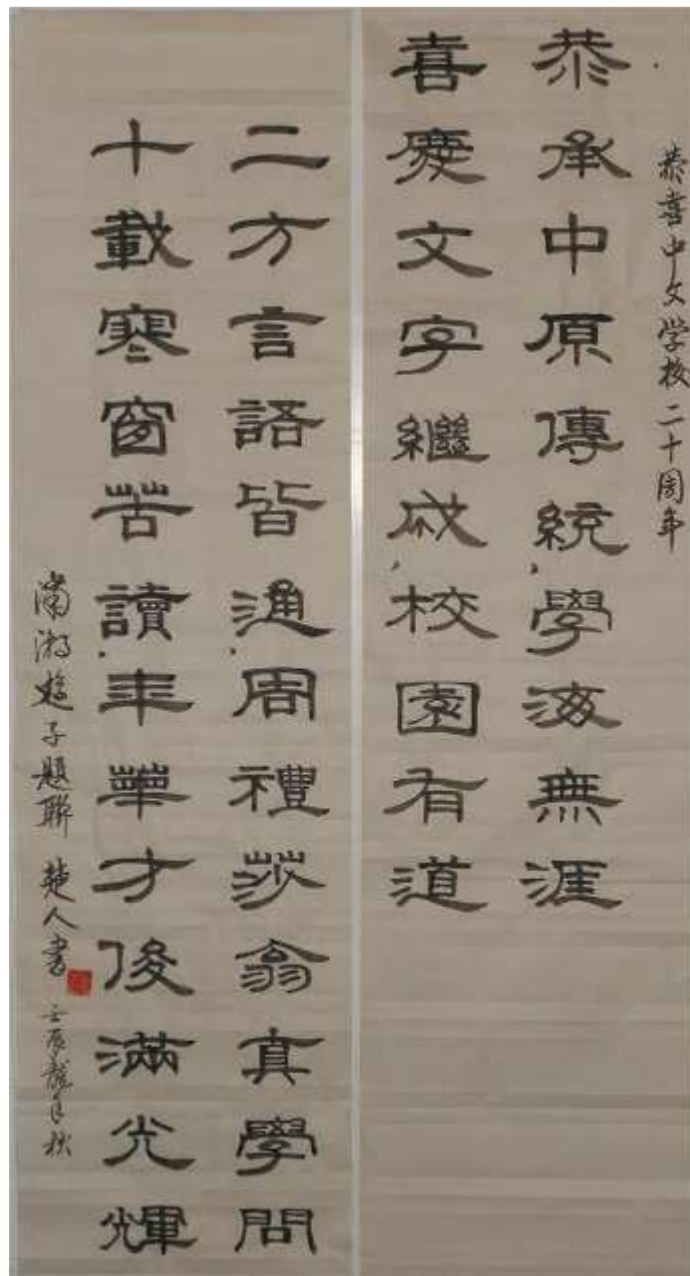 恭喜中文学校二十周年
恭承中原傳統，學海無涯
喜慶文字繼成，校園有道
二方言語皆通，周禮莎翁真學問
十載寒窗苦讀，年華才俊滿光輝
瀟湘遊子題聯 楚人書
壬辰龍年秋